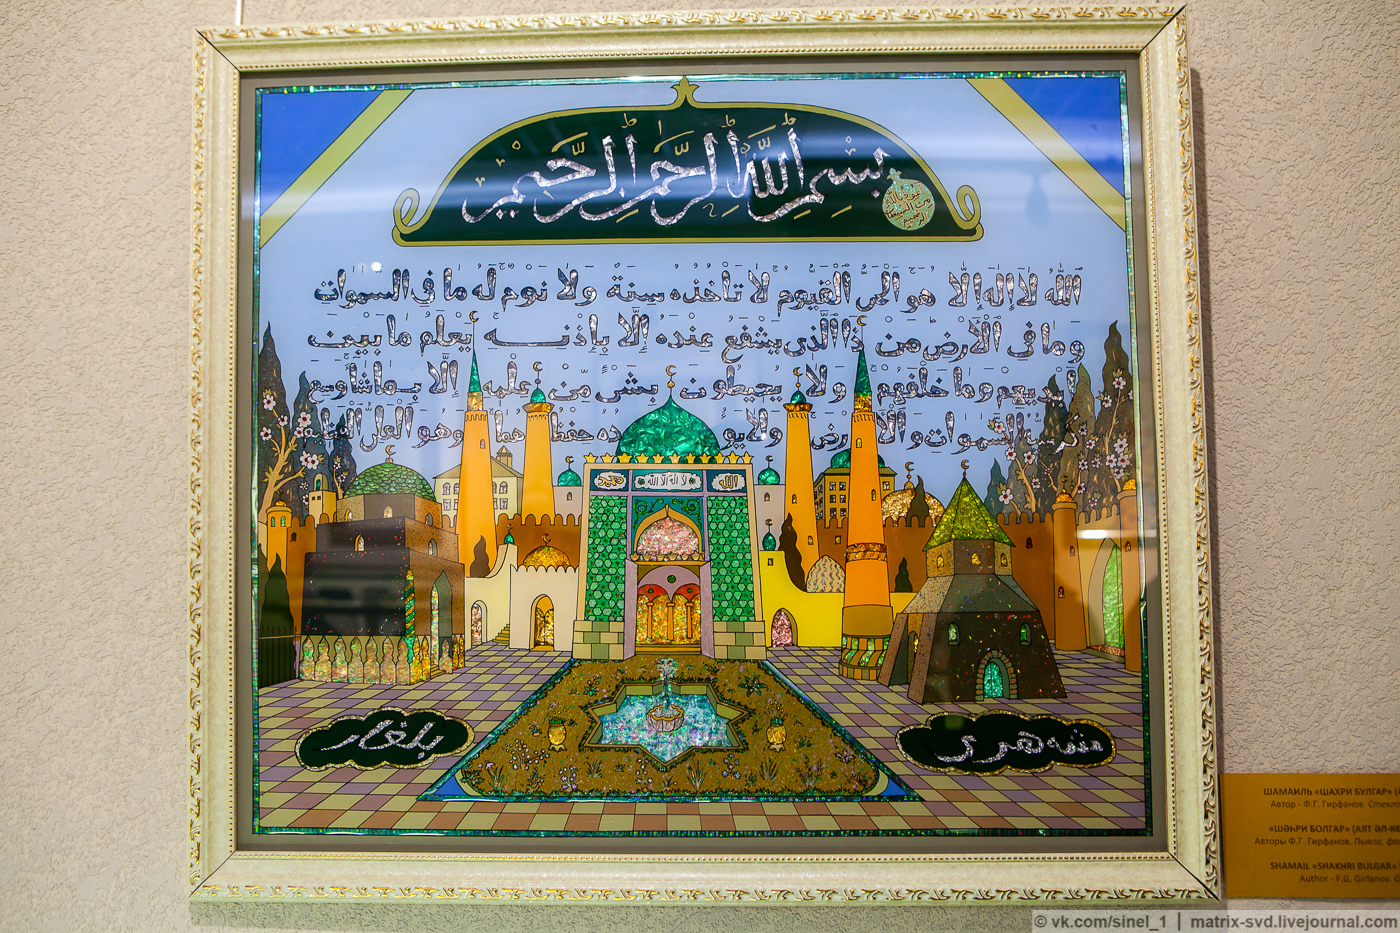 بِسْمِ اللهِ الرَّحْمٰنِ الرَّحِيْمِ
اعوذ بالله
من الشيطان
الرجيم
اللهُ لَا اِلٰهَ اِلَّا هو الحىّ القيوم لا تأخذه سِنَة ولا نوم له ما فى السموات
وما فى الْاَرْض من ذا الّذى يَشْفع عنده الّا بإذنه يعلم ما بين
ايديهم وما خلفهم ولا يحيطون بشىء من علمه الّا بما شاء وسع
السموات والارض ولا حفظهما وهو العلىّ
محمد
لا اله الا الله
الله
بلغار
شهرى
ШАМАИЛЬ «ШАХРИ БУЛГАР»
Автор - Ф.Г. Гирфанов.
«ШӘҺРИ БОЛГАР» (АЯТ
Авторы Ф.Г. Гирфанов. Пыяла,
SHAMAIL «SHAKHRI BULGAR»
Author - F.G. Girfanov.
© vk.com/sinel_1 | matrix-svd.livejournal.com